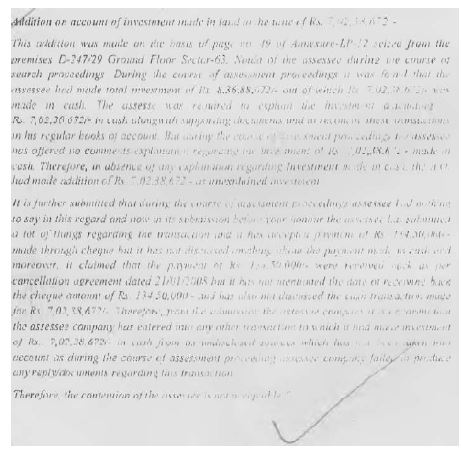 Addition on account of investment made in land at the tune of Rs. 7,02,38,672/-
This addition was made on the basis of page no. 49 of Annexure-LP-12 seized from the
premises D-247/29 Ground Floor Sector-63, Noida of the assessee during the course of
search proceedings. During the course of assessment proceedings it was found that the
assessee had made total investment of Rs. 8,36,88,672/- out of which Rs. 7,02,38,672/- was
made in cash. The assesse was required to explain the investment
Rs. 7,02,30,672/- in cash alongwith supporting documents and these transactions
in his regular books of account. But during the course of assessment proceedings the assessee
has offered no comments/explanation regarding the investment of Rs. 7,02,38,672/- made in
cash. Therefore, in absence of any explanation regarding investment made in cash, the A.O.
had made addition of Rs. 7,02,38,672/- as unexplained investment.
It is further submitted that during the course of assessment proceedings assessee had nothing
to say in this regard and now in its submission before your honour the assessee has submitted
a lot of things regarding the transaction and it has accepted payment of Rs. 134,50,000/-
made through cheque but it has not discussed anything about the payment made in cash and
moreover, it claimed that the payment of Rs. 134,50,000/- were received back as per
cancellation agreement dated 21/01/2008 but it has not mentioned the date of receiving back
the cheque amount of Rs. 134,50,000/- and has also not discussed the cash transaction made
for Rs. 7,02,38,672/-. Therefore, from the
the assessee company has entered into any other transaction to which it had made investment
of Rs. 7,02,38,672/- in cash from its undisclosed sources which has not been taken into
account as during the course of assessment proceeding assessee company failed to produce
any reply/documents regarding this transaction.
Therefore, the contention of the assessee is not acceptable."